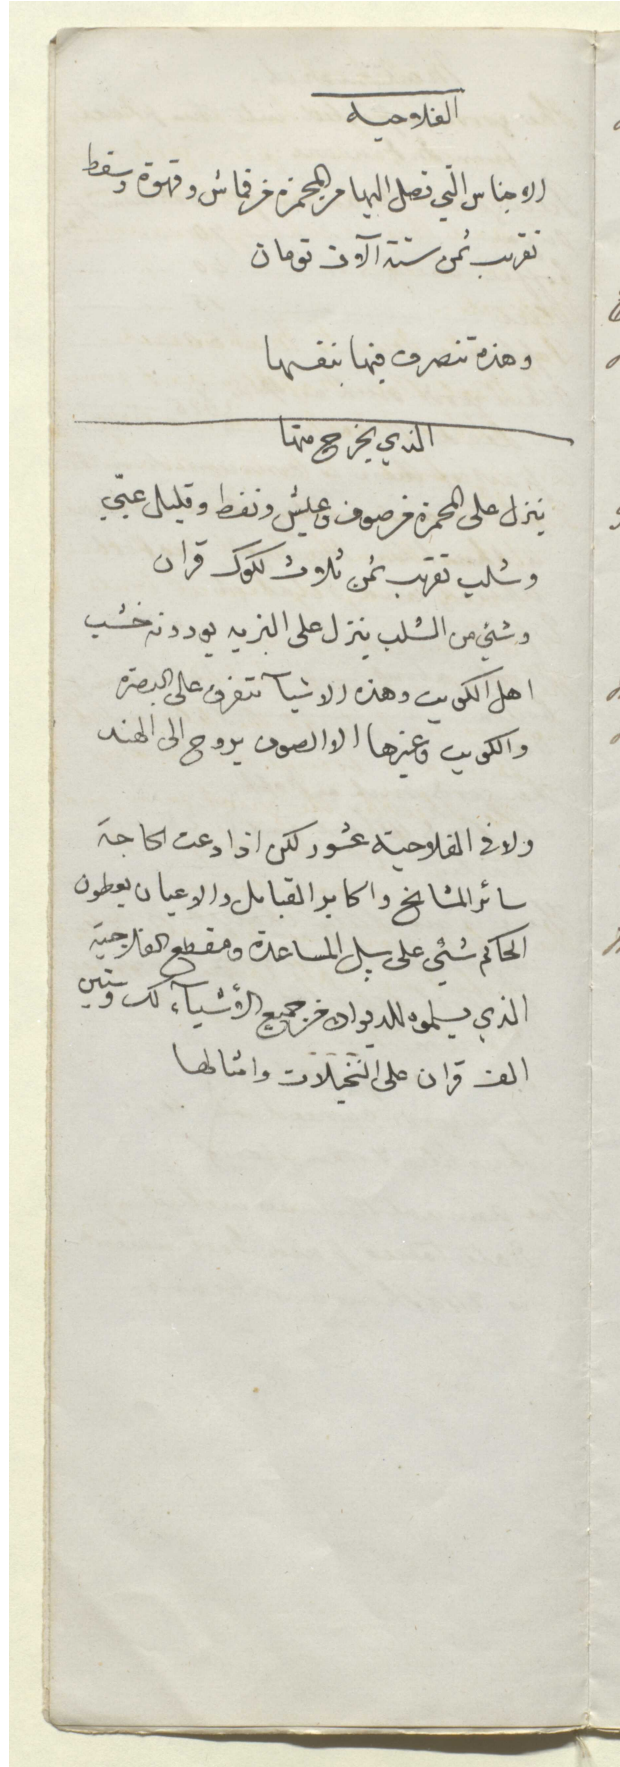 الفلاحيه
الاجناس التي تصل اليها من المحمرة من قماش وقهوة وسقط
تقريب ثمن ستة آلاف تومان
وهذه تنصرف فيها بنفسها
الذي يخرج منها
ينزل على المحمرة من صوف وعيش ونفط وقليل عبّي
وشلب تقريب ثمن ثلاث لكوك قران
وشيء من الشلب ينزل على البزيه يوردونه خشب
اهل الكويت وهذه الاشيآ تتفرق على البصرة
والكويت وغيرها الا الصوف يروح الى الهند
ولا في الفلاحية عشور لكن اذا دعت الحاجة
سائر المشايخ واكابر القبايل والاعيان يعطون
الحاكم شئي على سبيل المساعدة ومقطع الفلاحية
الذي يسلموه للديوان من جميع الأشيآء لك وستين
الف قران على النخيلات وامثالها